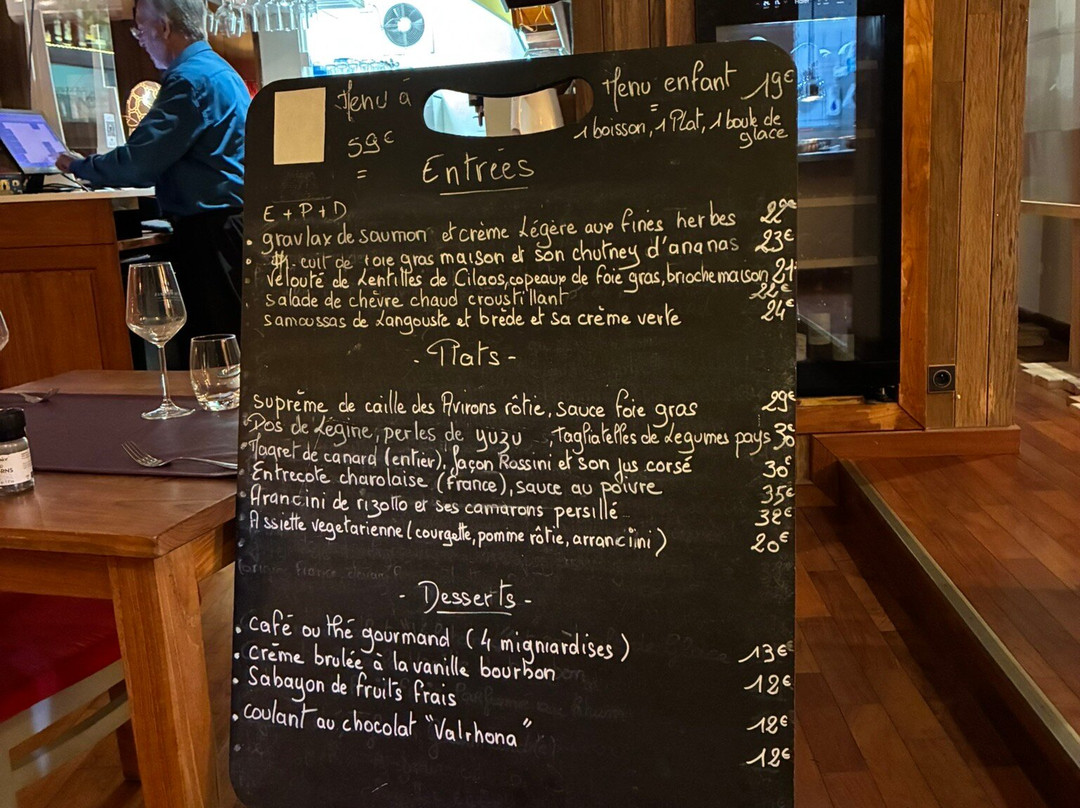 Menu à
59€
Menu enfant 19€
1 boisson, 1 Plat, 1 boule de
glace
Entrées
E + P + D
• gravlax de saumon et crème légère aux fines herbes 22€
• mi. cuit de foie gras maison et son chutney d'ananas 23€
Velouté de Lentilles de Cilaos, copeaux de foie gras, brioche maison 21
salade de chèvre chaud croustillant 22€
samoussas de Langouste et brède et sa crème verte 24€
- Plats -
suprême de caille des Avirons rôtie, sauce foie gras 29€
• Dos de Légine, perles de yuzu, Tagliatelles de Legumes pays 36
• Magret de canard (entier), façon Rossini et son jus corsé 30€
Entrecote charolaise (France), sauce au poivre 35€
• Arancini de rizotto et ses camarons persillé 32€
• Assiette vegetarienne (courgette, pomme rôtie, arranciini) 20€
- Desserts -
• café ou thé gourmand (4 migniardises) 13€
• crème brulée à la vanille bourbon 12€
• Sabayon de fruits frais 12€
• coulant au chocolat "Valrhona" 12€